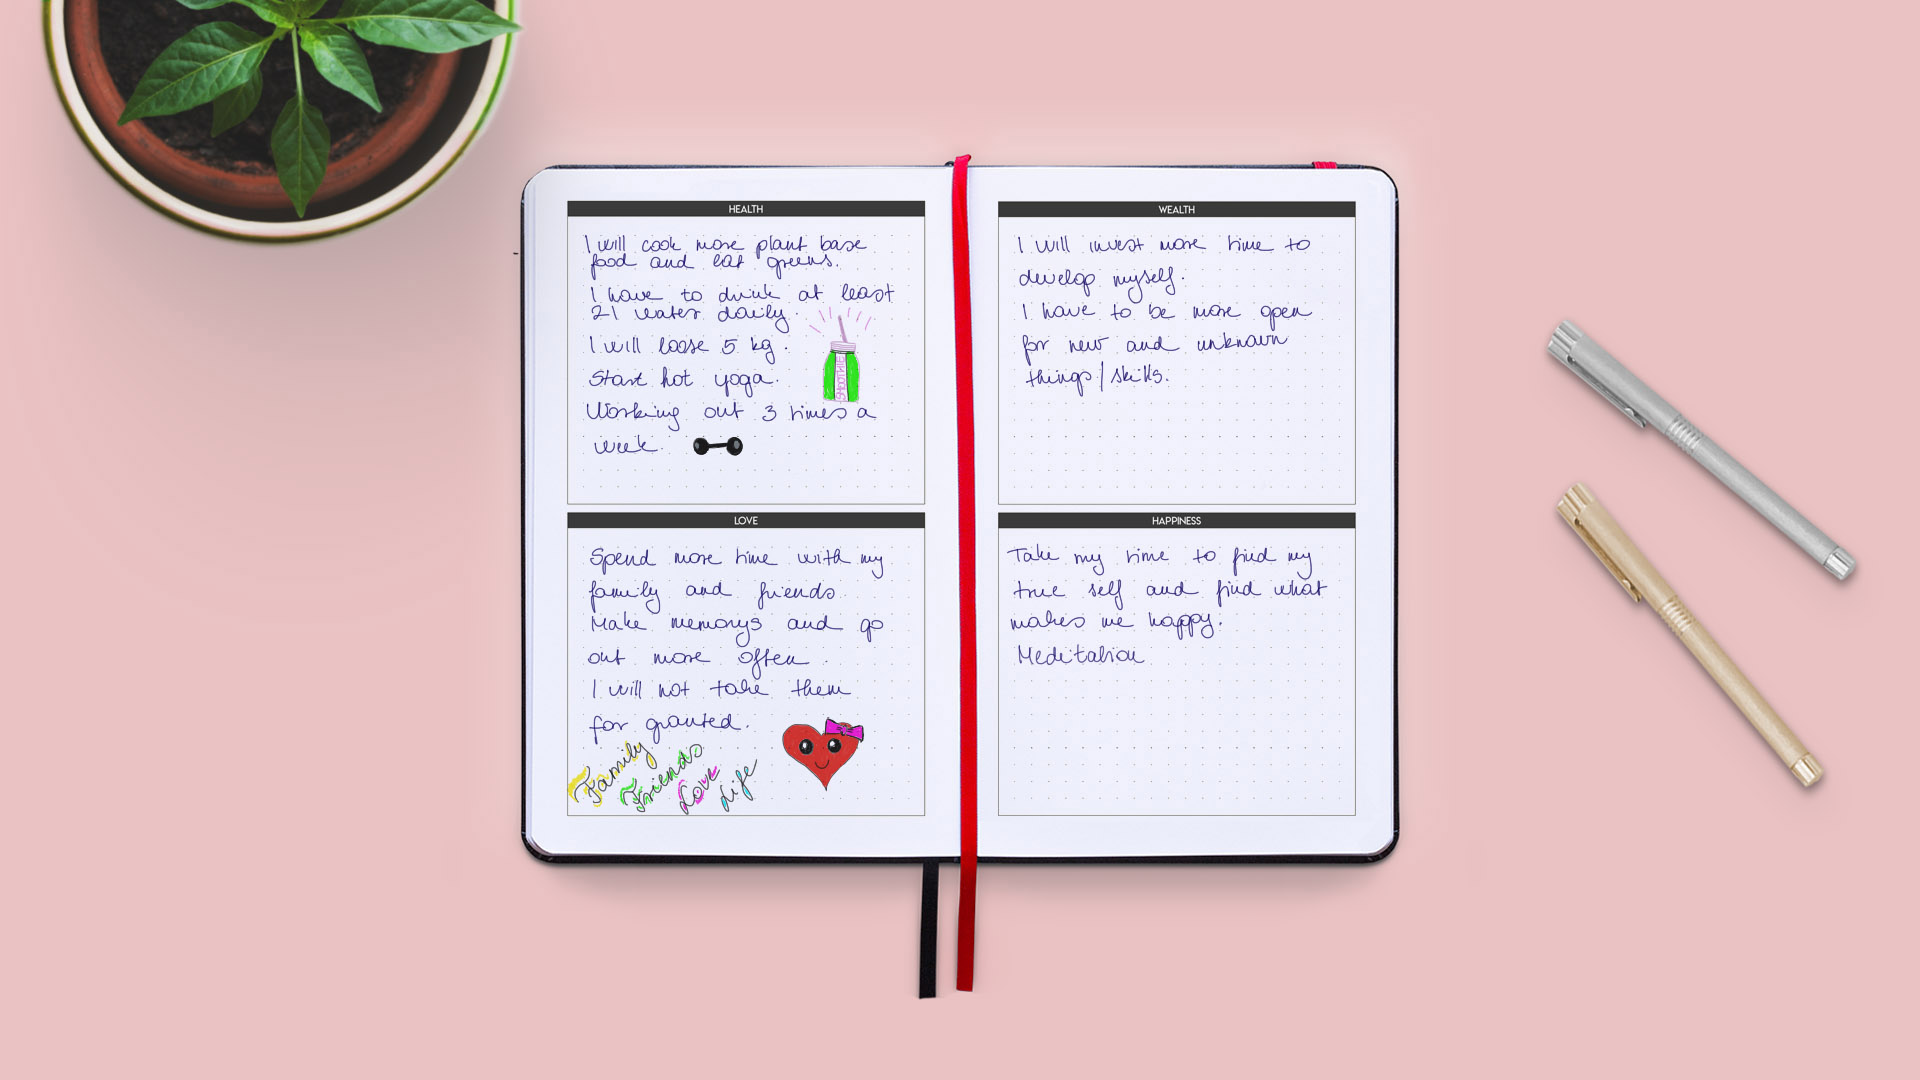 HEALTH
I will cook more plant base
food and eat greens.
I have to drink at least
2l water daily.
I will loose 5 kg.
Start hot yoga.
Working out 3 times a
week.
SMOOTHIE
LOVE
Spend more time with my
family and friends
Make memorys and go
out more often.
I will not take them
for granted.
Family
Friends
Love
Life
WEALTH
I will invest more time to
develop myself.
I have to be more open
for new and unknown
things/skills.
HAPPINESS
Take my time to find my
true self and find what
makes me happy.
Meditation